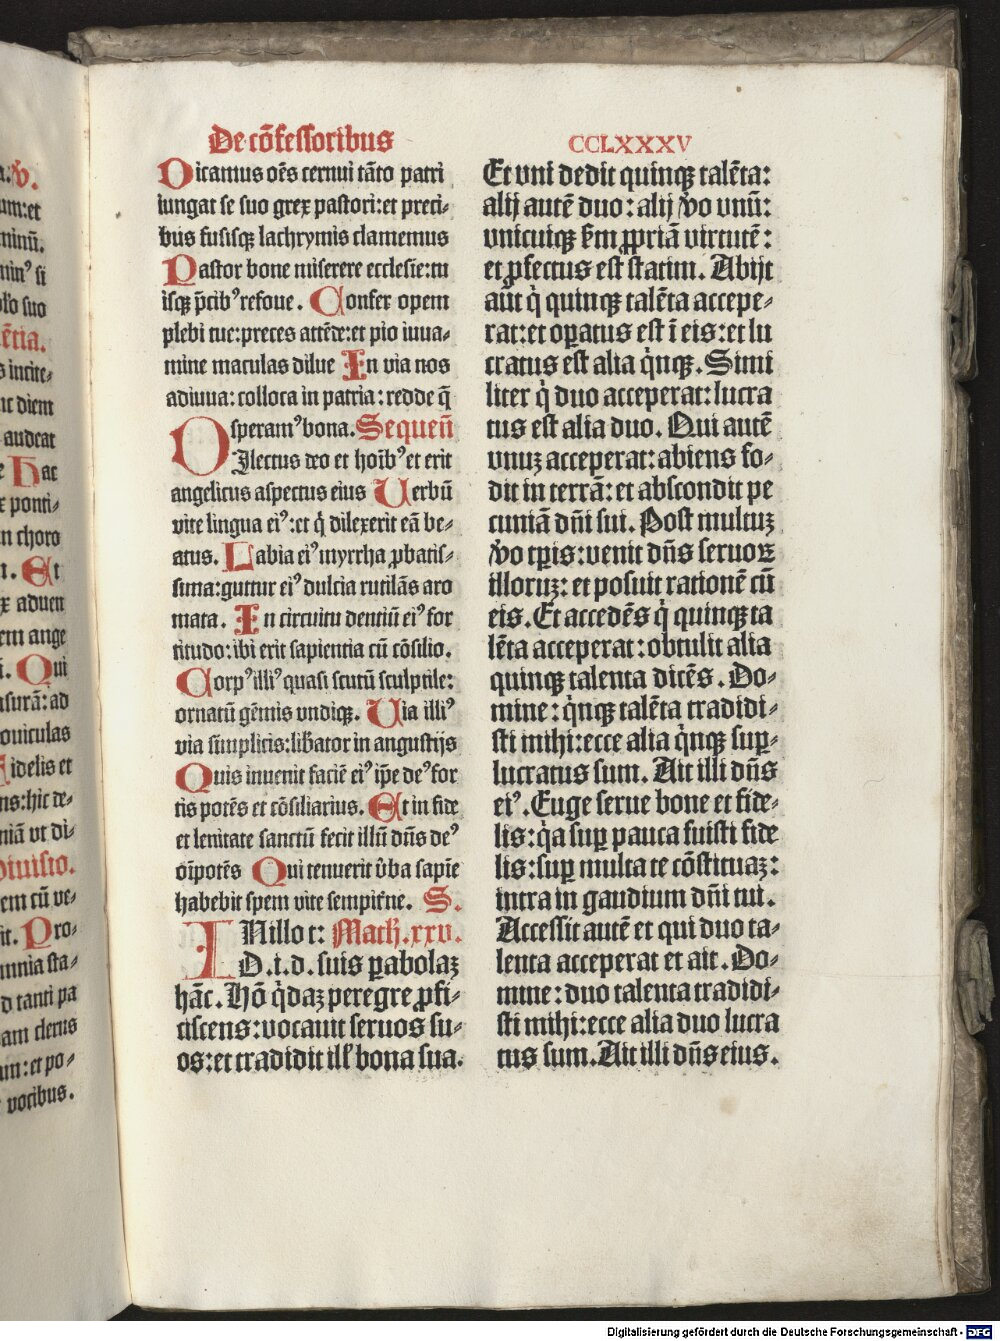 De cōfessoribus
CCLXXXV
Dicamus oēs cernui tāto patri
iungat se suo grex pastori:et preci⸗
bus fusisqꝫ lachrymis clamemus
Pastor bone miserere ecclesie:tu
isqꝫ p̄cibꝰ refoue. Confer opem
plebi tue:preces attēde:et pio iuua⸗
mine maculas dilue In via nos
adiuua: colloca in patria: redde q̄
speramꝰ bona. Sequen̄
DIlectus deo et hoībꝰ et erit
angelicus aspectus eius Uerbū
vite lingua eiꝰ:et q̇ dilexerit eā be⸗
atus. Labia eiꝰ myrrha ꝓbatis⸗
sima:guttur eiꝰ dulcia rutilās aro
mata. In circuitu dentiū eiꝰ for
titudo:ibi erit sapientia cū cōsilio.
Corpꝰ illiꝰ quasi scutū sculptile:
ornatū gēmis vndiqꝫ. Uia illiꝰ
via simplicis:libator in angustijs
Quis inuenit faciē eiꝰ ip̄e deꝰ for
tis potēs et cōsiliarius. Et in fide
et lenitate sanctū fecit illū dn̄s deꝰ
oīpotēs Qui tenuerit v̄ba sapīe
habebit spem vite sempit̄ne. S.
IN illo t: Math.xxv.
D.i.d. suis ꝑabolaꝫ
hāc. Hō q̇daꝫ peregre ꝓfi⸗
ciscens:vocauit seruos su⸗
os:et tradidit ill̓ bona sua.
Et vni dedit quinqꝫ talēta:
alij autē duo: alij v̓o vnū:
vnicuiqꝫ s̄m ꝓpriā virtutē:
et ꝓfectus est statim. Abijt
aūt q̇ quinqꝫ talēta accepe⸗
rat:et oꝑatus est ī eis:et lu
cratus est alia q̇nqꝫ. Simi
liter q̇ duo acceperat: lucra
tus est alia duo. Qui autē
vnuꝫ acceperat: abiens fo⸗
dit in terrā: et abscondit pe
cuniā dn̄i sui. Post multuꝫ
v̓o tp̄is: venit dn̄s seruoꝝ
illoruꝫ: et posuit rationē cū
eis. Et accedēs q̇ quinqꝫ ta
lēta acceperat: obtulit alia
quinqꝫ talenta dicēs. Do⸗
mine: q̇nqꝫ talēta tradidi⸗
sti mihi:ecce alia q̇nqꝫ suꝑ⸗
lucratus sum. Ait illi dn̄s
eiꝰ. Euge serue bone et fide⸗
lis: q̇a suꝑ pauca fuisti fide
lis: suꝑ multa te cōstituaꝫ:
intra in gaudium dn̄i tui.
Accessit autē et qui duo ta⸗
lenta acceperat et ait. Do⸗
mine: duo talenta tradidi⸗
sti mihi:ecce alia duo lucra
tus sum. Ait illi dn̄s eius.
Digitalisierung gefördert durch die Deutsche Forschungsgemeinschaft - DFG